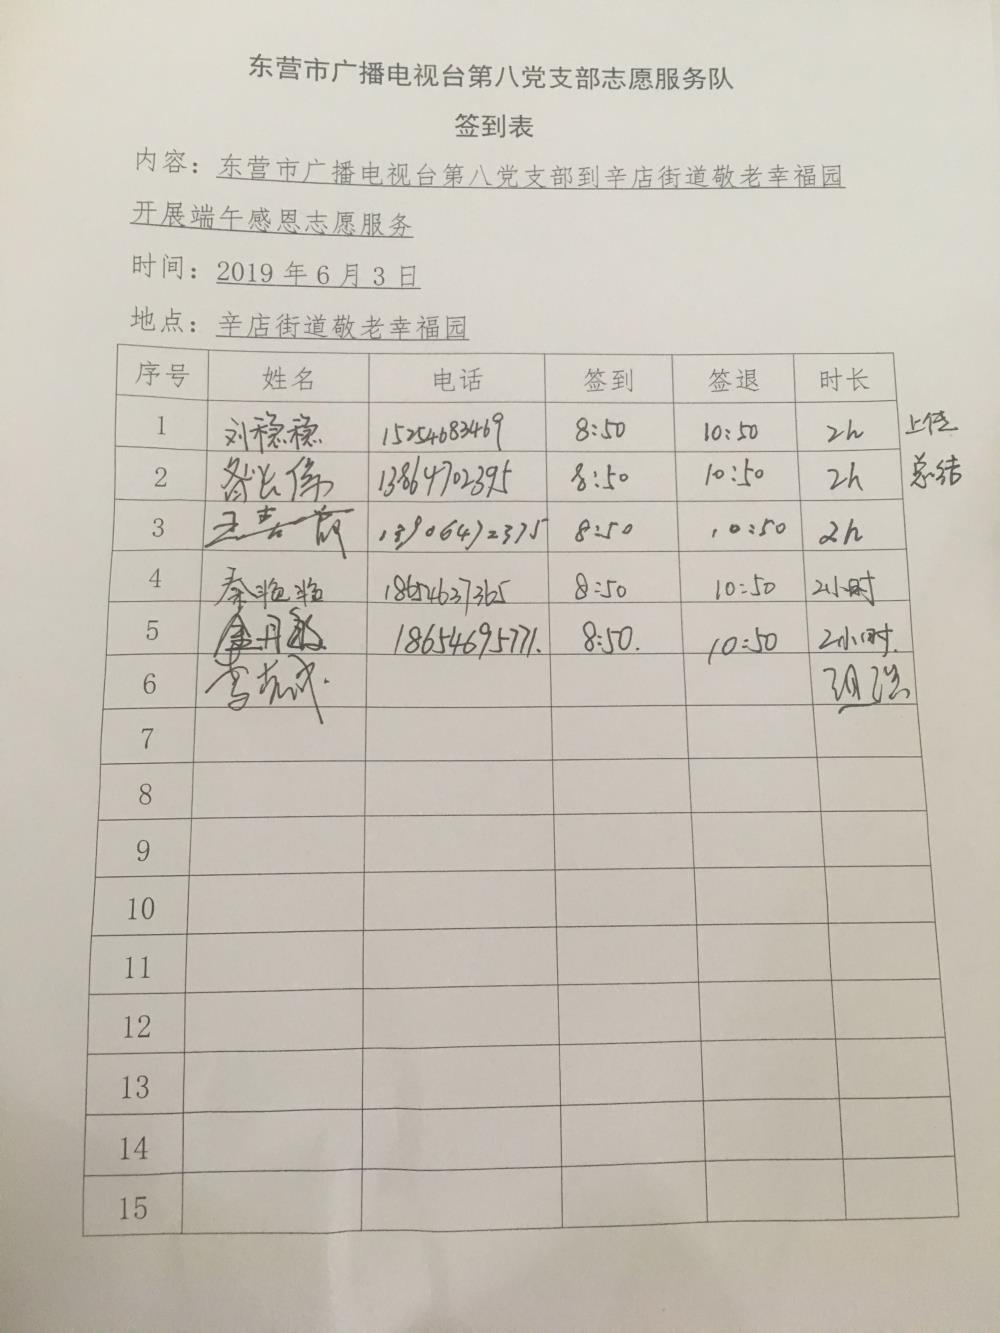 东营市广播电视台第八党支部志愿服务队
签到表
内容：东营市广播电视台第八党支部到辛店街道敬老幸福园
开展端午感恩志愿服务
时间：2019年6月3日
地点：辛店街道敬老幸福园
序号 姓名 电话 签到 签退 时长
1 刘稳稳 15254683469 8:50 10:50 2h 上传
2 13864702395 8:50 10:50 2h 总结
3 13906472375 8:50 10:50 2h
4 秦艳艳 18654637365 8:50 10:50 2小时
5 18654695771. 8:50. 10:50 2小时.
6
7
8
9
10
11
12
13
14
15